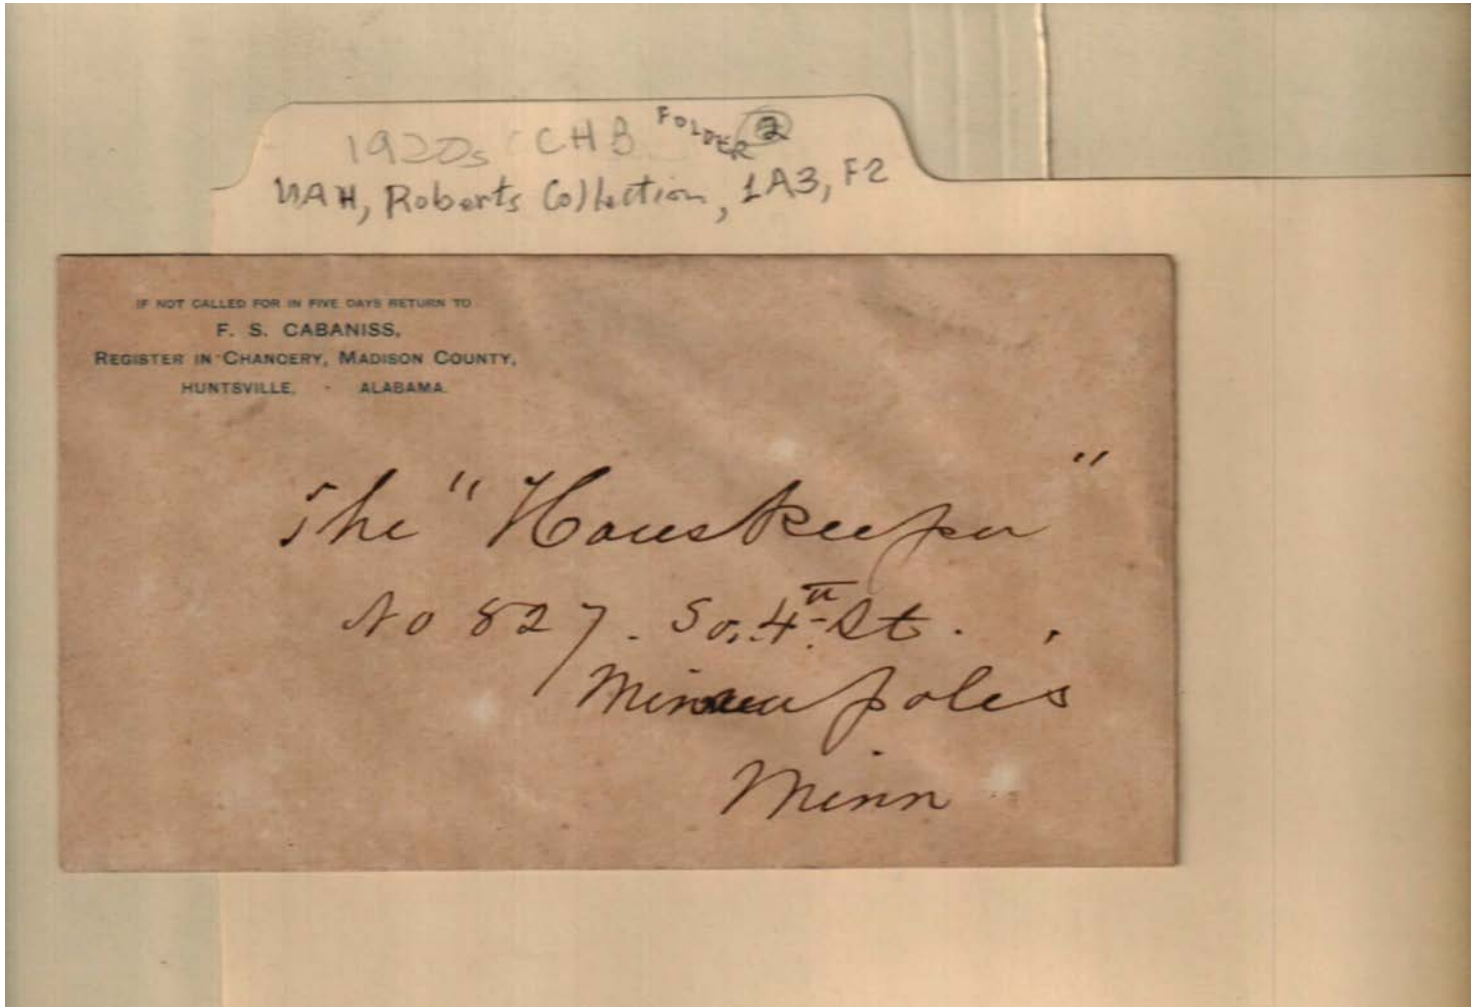 1920s CHB FOLDER 2
UAH, Roberts Collection, 1A3, F2
IF NOT CALLED FOR IN FIVE DAYS RETURN TO
F. S. CABANISS,
REGISTER IN CHANCERY, MADISON COUNTY,
HUNTSVILLE, - ALABAMA.
The "Houskeeper"
No 827. So. 4th St.
Minneapolis
Minn